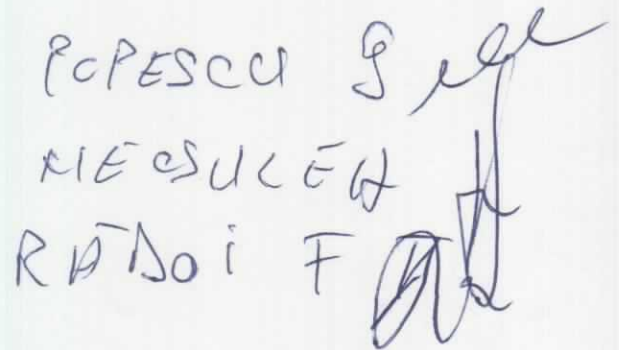 POPESCU G
NECSULEA
RĂDOI F